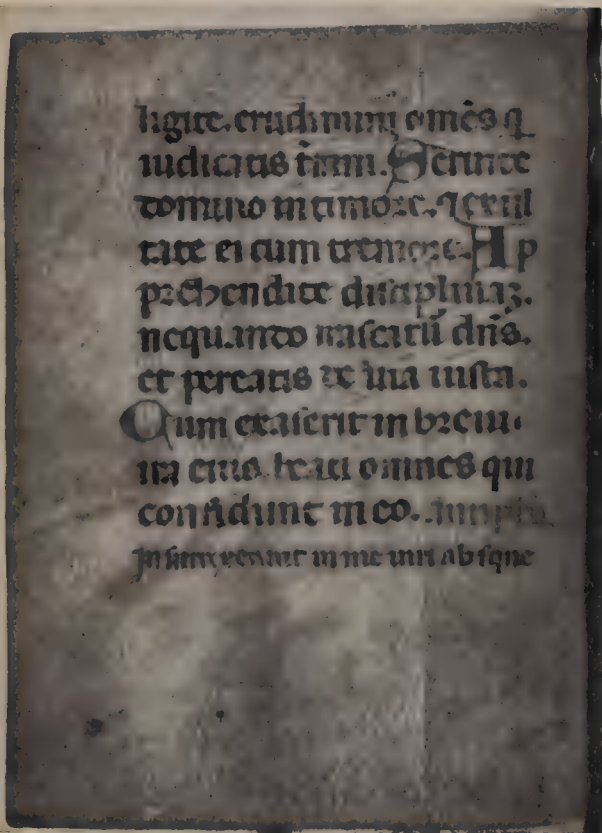 ligite. erudimini om̄es q̄
iudicatis t̄ram. Seruite
domino in timore. ⁊ exul
tate ei cum tremore. Ap
prehendite disciplinaꝫ.
nequando irascat̄u dn̄s.
et pereatis de uia iusta.
Cum exarserit in breui.
ira eius. beati omnes qui
confidunt in eo.
In surrexerunt in me uiri absque